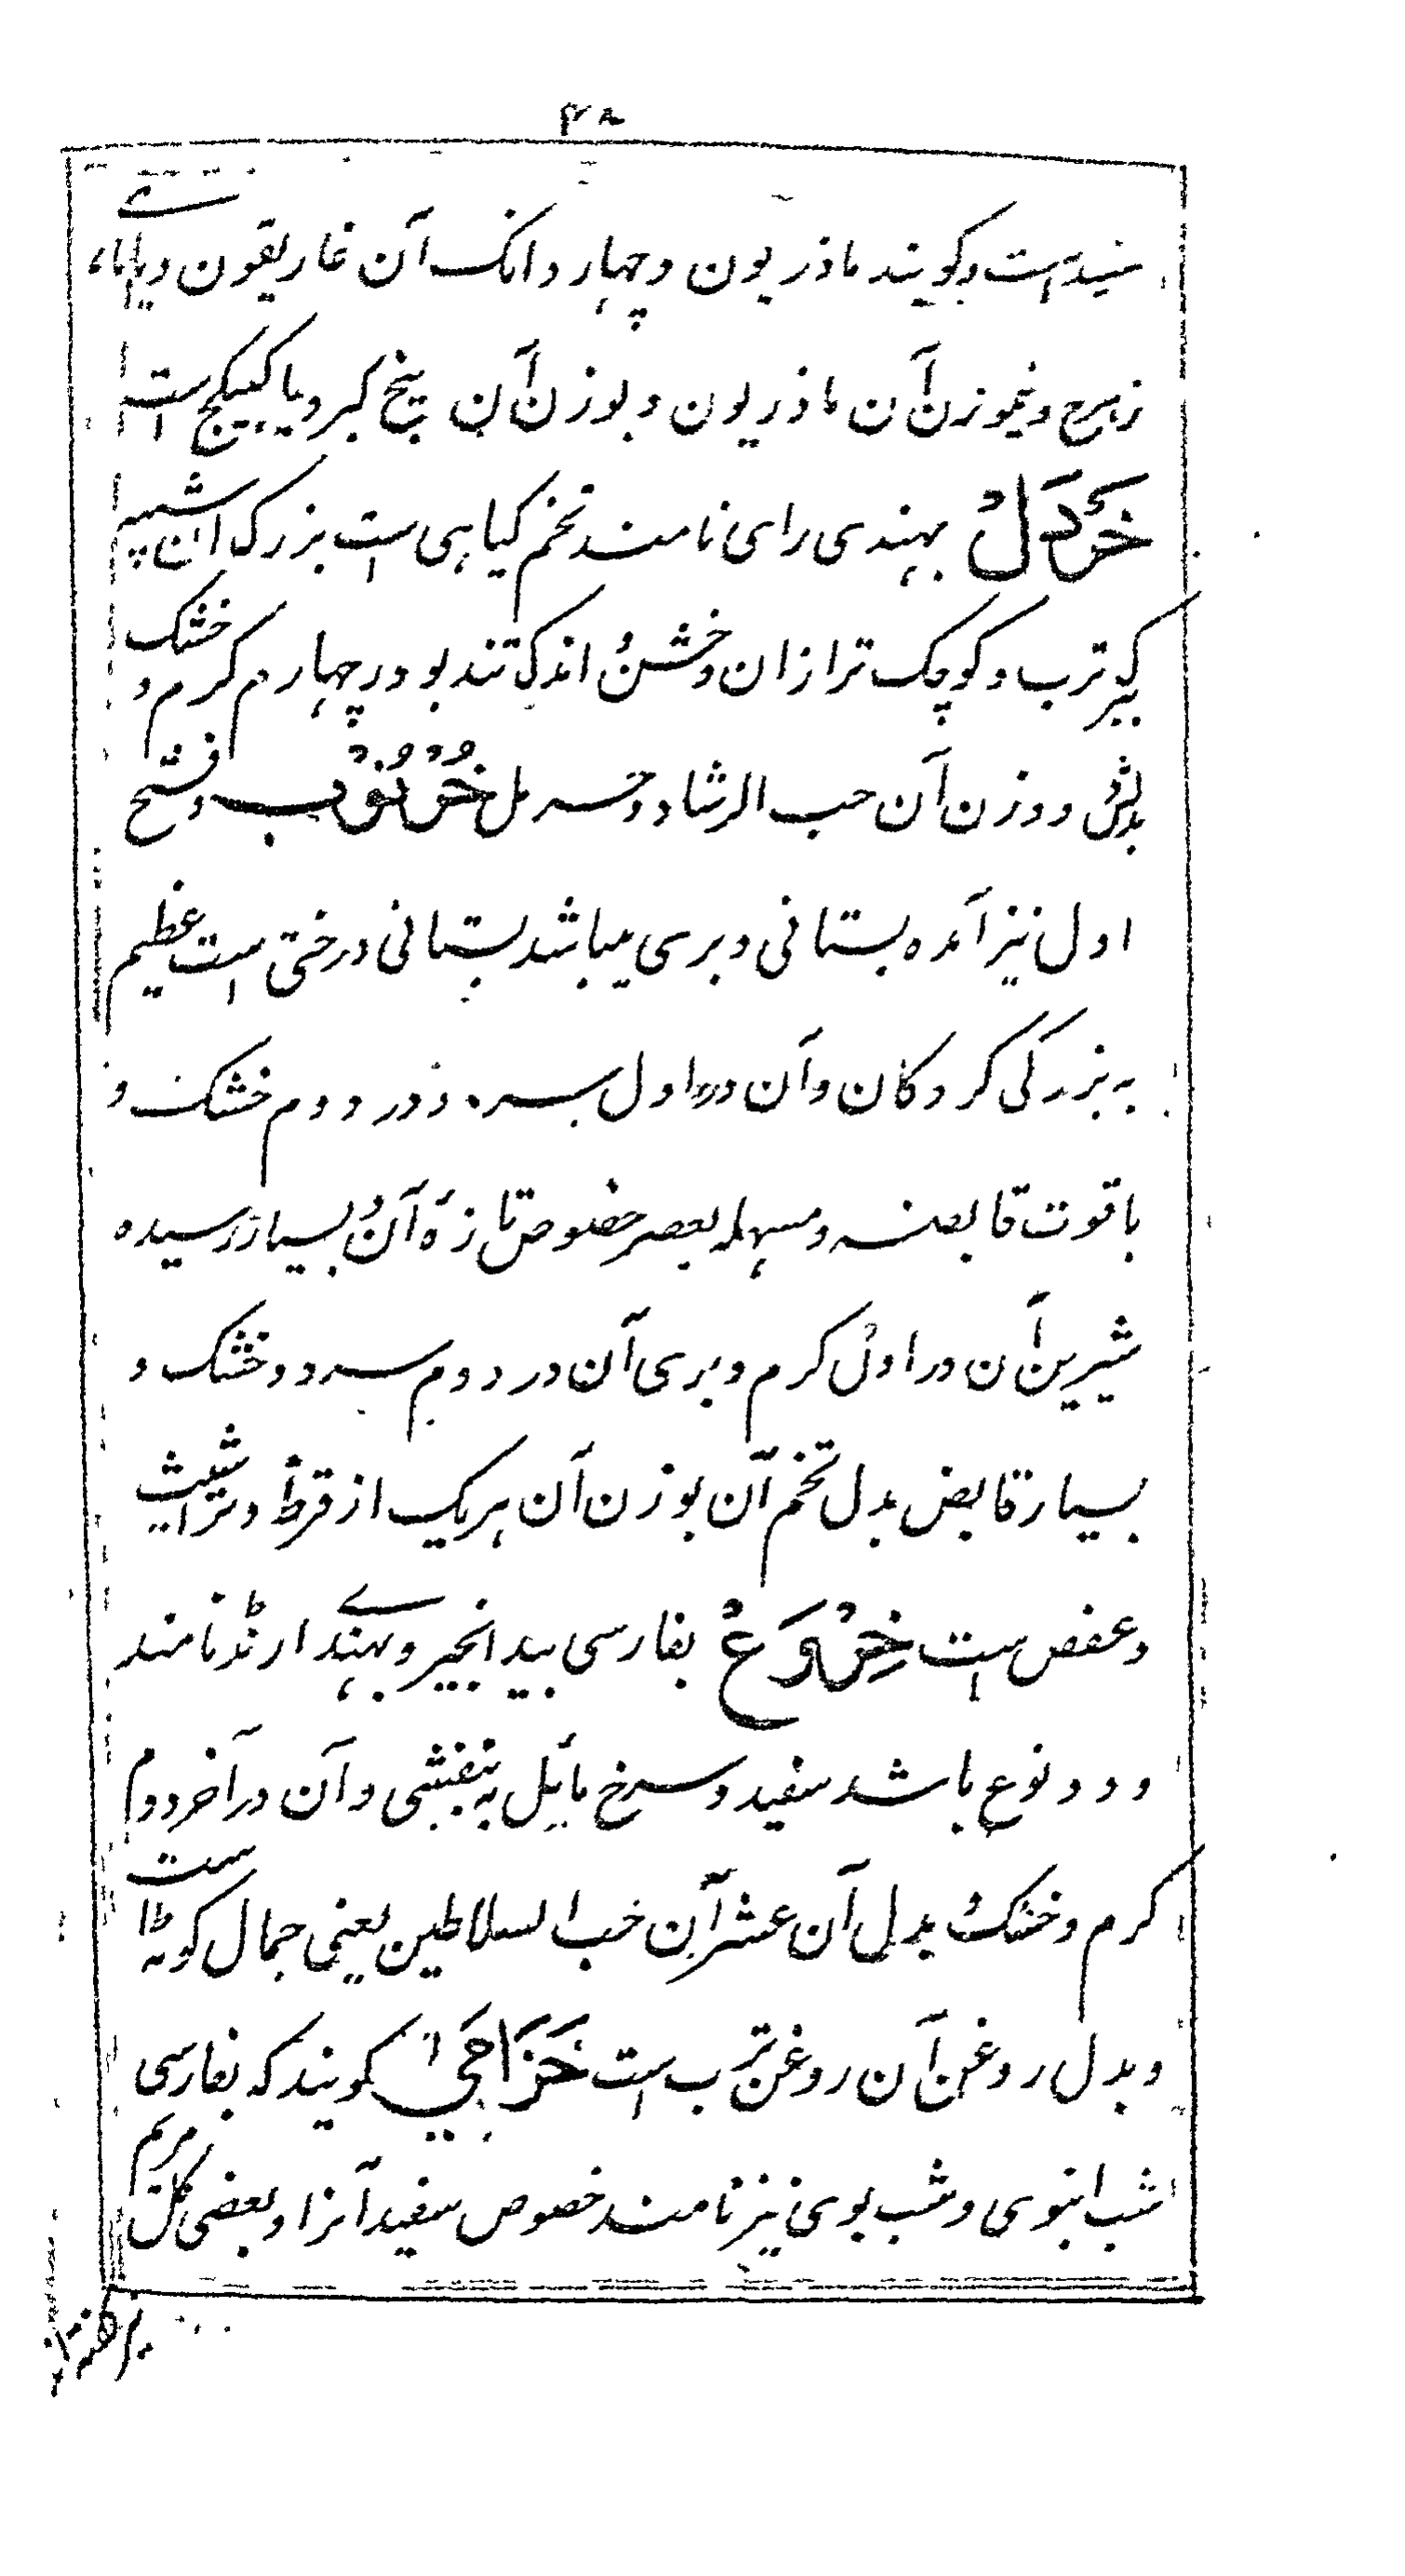 ۴۸
سنیده است و گویند ماذریون و چهار دانک آن غاریقون و یا
زهرج و نیموزن آن ماذریون و بوزن آن بیخ کبر و یا کبیکج است
خَرْدَلْ بهندی رای نامند تخم گیاهی است بزرک آن شبیه
به ترب و کوچک تر ازان و خشن و اندکی تند بو در چهارم کرم و خشک
بدلش دو وزن آن حب الرشاد و حرمل خُرْنُوْب و فتح
اول نیز آمده بستانی و بری میباشد بستانی درختی است عظیم
به بزرکی کردکان و آن در اول سرد و در دوم خشک و
با قوت قابضه و مسهله بعصر خصوص تازهٔ آن و بسیار رسیده
شیرین آن در اول کرم و بری آن در دوم سرد و خشک و
بسیار قابض بدل تخم آن بوزن آن هریک از قرظ و تراثیث
و عفص است خِرْوَعْ بفارسی بید انجیر و بهندے ارنڈ نامند
و دو نوع باشد سفید و سرخ مائل به بنفشی و آن در آخر دوم
کرم و خشک و بدل آن عشر آن حب السلاطین یعنی جمال کوٹه است
و بدل روغن آن روغن ترب است خَزَامَیٰ کویند که بفارسی
شب انبوی و شب بوی نیز نامند خصوص سفید آنرا و بعضی کل مریم